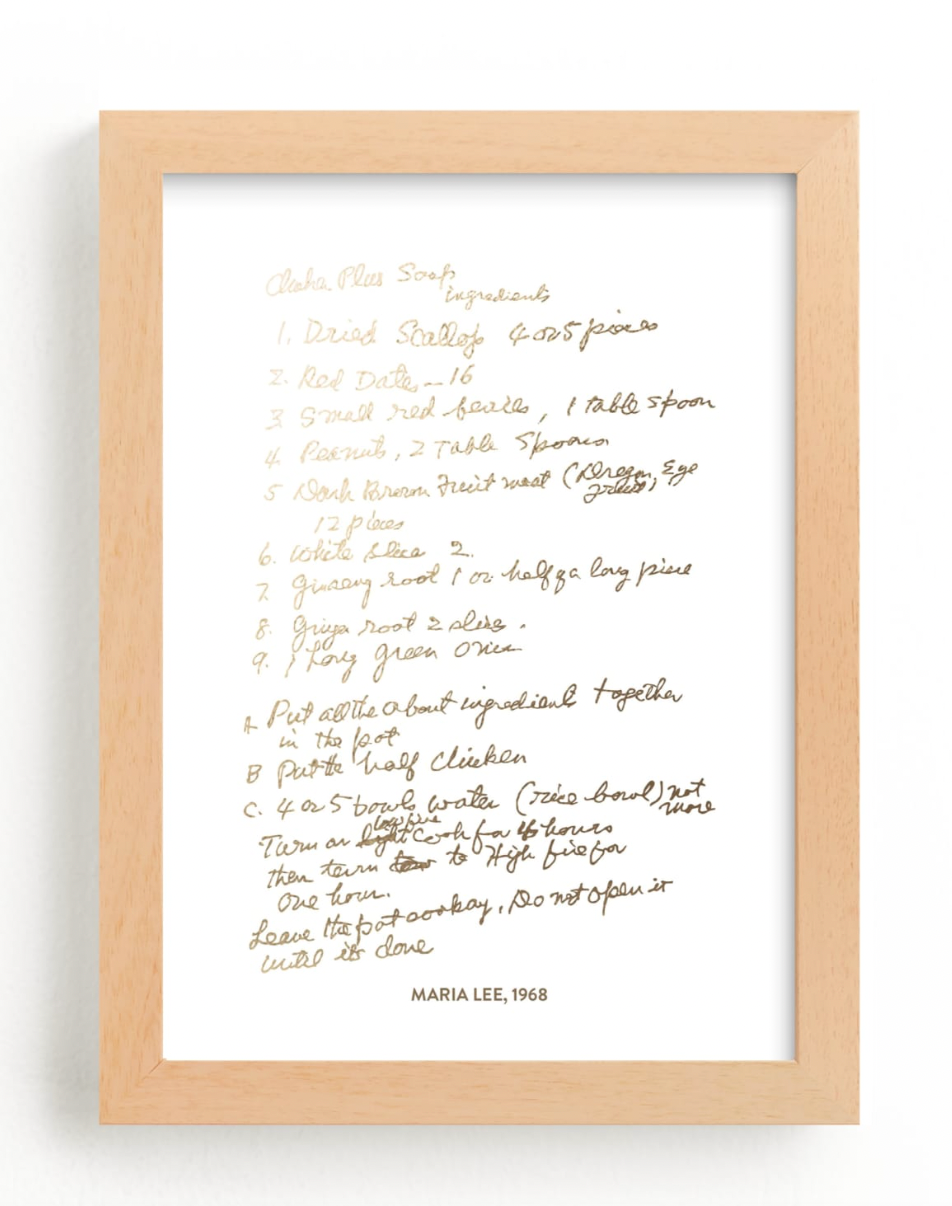 Plus Soup
ingredients
1. Dried Scallop 4 or 5 pieces
2. Red Dates - 16
3 Small red , 1 table spoon
4. Peanuts, 2 Table Spoons
5 Dark Brown Fruit meat (Dragon, Eye
fruit)
12 pieces
6. White slice 2.
7 Ginseng root 1 or half of a long piece
8. root 2 slices .
9. 1 Long green
A Put all the about ingredients together
in the pot
B Put the half Chicken
C. 4 or 5 bowls water (rice bowl) not
more
low fire
Turn on Cook for hours
then turn to High fire for
one hour.
Leave the pot , Do not open it
until its done
MARIA LEE, 1968